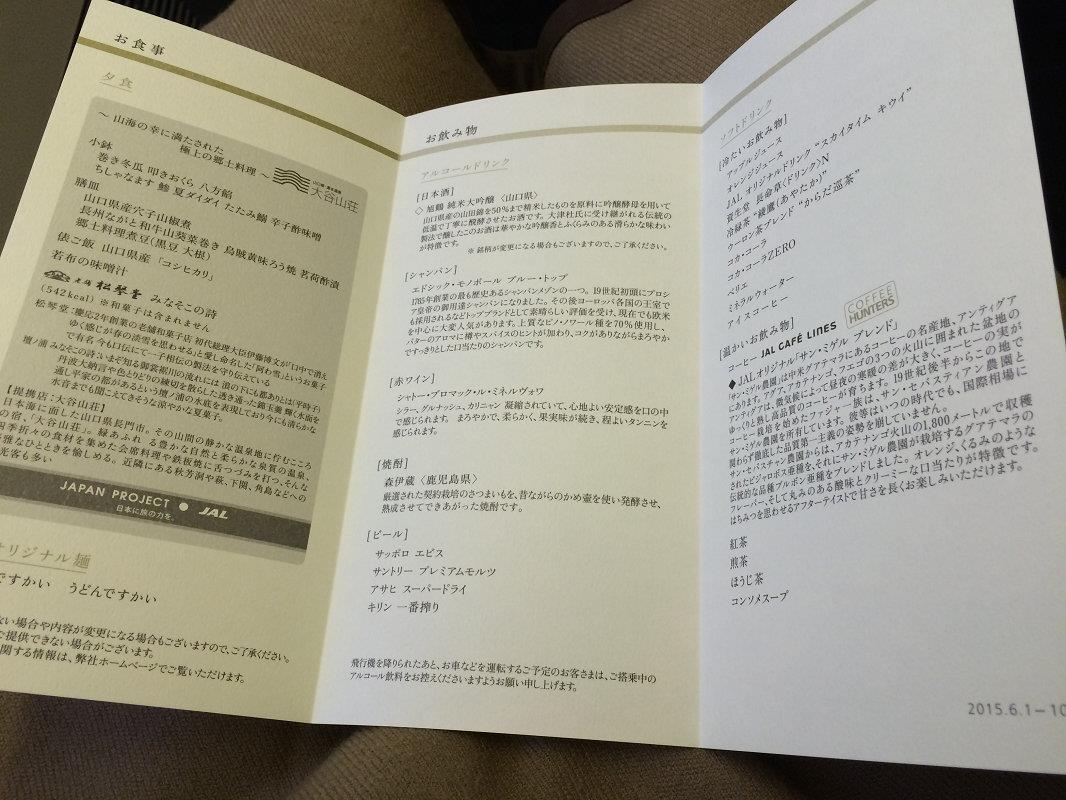 お食事
夕食
～ 山海の幸に満たされた
極上の郷土料理 ～
大谷山荘
小鉢
巻き冬瓜 叩きおくら 八方餡
ちしゃなます 鯵 夏ダイダイ たたみ鰯 辛子酢味噌
膳皿
山口県産穴子山椒煮
長州ながと和牛山葵菜巻き 烏賊黄味ろう焼 茗荷酢漬
郷土料理煮豆(黒豆 大根)
俵ご飯 山口県産 「コシヒカリ」
若布の味噌汁
松琴堂 みなそこの詩
(542kcal) ※和菓子は含まれません
松琴堂：慶応2年創業の老舗和菓子店 初代総理大臣伊藤博文が「口中で消え
ゆく感じが春の淡雪を思わせる」と愛し命名した「阿わ雪」というお菓子
で有名 今も口伝にて一子相伝の製法を守り伝えている
壇ノ浦 みなそこの詩：いまぞ知る御裳裾川の流れには 浪の下にも都ありとは(平時子)
丹波大納言や色とりどりの練切を散らした透き通った錦玉羹 輝く水面を
通し平家の都があるという壇ノ浦の水底を表現しており今にも清らかな
水音までも聞こえてきそうな涼やかな夏菓子。
【提携店：大谷山荘】
日本海に面した山口県長門市。その山間の静かな温泉地に佇むこころ
の宿、「大谷山荘」。緑あふれる豊かな自然と柔らかな泉質の温泉、
四季折々の食材を集めた会席料理や鉄板焼に舌つづみを打つ、そんな
雅なひとときを愉しめる。近隣にある秋芳洞や萩、下関、角島などへの
光客も多い
JAPAN PROJECT ● JAL
日本に旅の力を。
オリジナル麺
ですかい うどんですかい
ない場合や内容が変更になる場合もございますので、ご了承ください。
ご提供できない場合がございます。
関する情報は、弊社ホームページでご覧いただけます。
お飲み物
アルコールドリンク
[日本酒]
◇ 旭鶴 純米大吟醸 〈山口県〉
山口県産の山田錦を50%まで精米したものを原料に吟醸酵母を用いて
低温で丁寧に醗酵させたお酒です。大津杜氏に受け継がれる伝統の
製法で醸したこのお酒は華やかな吟醸香とふくらみのある滑らかな味わい
が特徴です。
※ 銘柄が変更になる場合もございますので、ご了承ください。
[シャンパン]
エドシック・モノポール ブルー・トップ
1785年創業の最も歴史あるシャンパンメゾンの一つ。19世紀初頭にプロシ
ア皇帝の御用達シャンパンになりました。その後ヨーロッパ各国の王室で
も採用されるなどトップブランドとして素晴らしい評価を受け、現在でも欧米
を中心に大変人気があります。上質なピノ・ノワール種を70%使用し、
バターのアロマに樽やスパイスのヒントが加わり、コクがありながらまろやか
ですっきりとした口当たりのシャンパンです。
[赤ワイン]
シャトー・ブロマック・ル・ミネルヴォワ
シラー、グルナッシュ、カリニャン 凝縮されていて、心地よい安定感を口の中
で感じられます。 まろやかで、柔らかく、果実味が続き、程よいタンニンを
感じられます。
[焼酎]
森伊蔵〈鹿児島県〉
厳選された契約栽培のさつまいもを、昔ながらのかめ壷を使い発酵させ、
熟成させてできあがった焼酎です。
[ビール]
サッポロ エビス
サントリー プレミアムモルツ
アサヒ スーパードライ
キリン 一番搾り
飛行機を降りられたあと、お車などを運転するご予定のお客さまは、ご搭乗中の
アルコール飲料をお控えくださいますようお願い申し上げます。
ソフトドリンク
[冷たいお飲み物]
アップルジュース
オレンジジュース
JAL オリジナルドリンク “スカイタイム キウイ”
資生堂 長命草〈ドリンク〉N
冷緑茶 “綾鷹(あやたか)”
ウーロン茶ブレンド “からだ巡茶”
コカ・コーラ
コカ・コーラZERO
ペリエ
ミネラルウォーター
アイスコーヒー
[温かいお飲み物]
コーヒー JAL CAFÉ LINES
COFFEE HUNTERS
◆JALオリジナル「サン・ミゲル ブレンド」
「サン・ミゲル農園」は中米グアテマラにあるコーヒーの名産地、アンティグア
にあります。アグア、アカテナンゴ、フエゴの3つの火山に囲まれた盆地の
アンティグアは、微気候によって昼夜の寒暖の差が大きく、コーヒーの実が
ゆっくりと熟し高品質のコーヒーが育ちます。19世紀後半からこの地で
コーヒー栽培を始めたファジャ一族は、サン・セバスティアン農園と
サン・ミゲル農園を所有しています。彼等はいつの時代でも、国際相場に
関わらず徹底した品質第一主義の姿勢を崩していません。
サン・セバスチャン農園からは、アカテナンゴ火山の1,800メートルで収穫
されたピジャロボス亜種を、それにサン・ミゲル農園が栽培するグアテマラの
伝統的な品種ブルボン亜種をブレンドしました。オレンジ、くるみのような
フレーバー、そして丸みのある酸味とクリーミーな口当たりが特徴です。
はちみつを思わせるアフターテイストで甘さを長くお楽しみいただけます。
紅茶
煎茶
ほうじ茶
コンソメスープ
2015.6.1－10